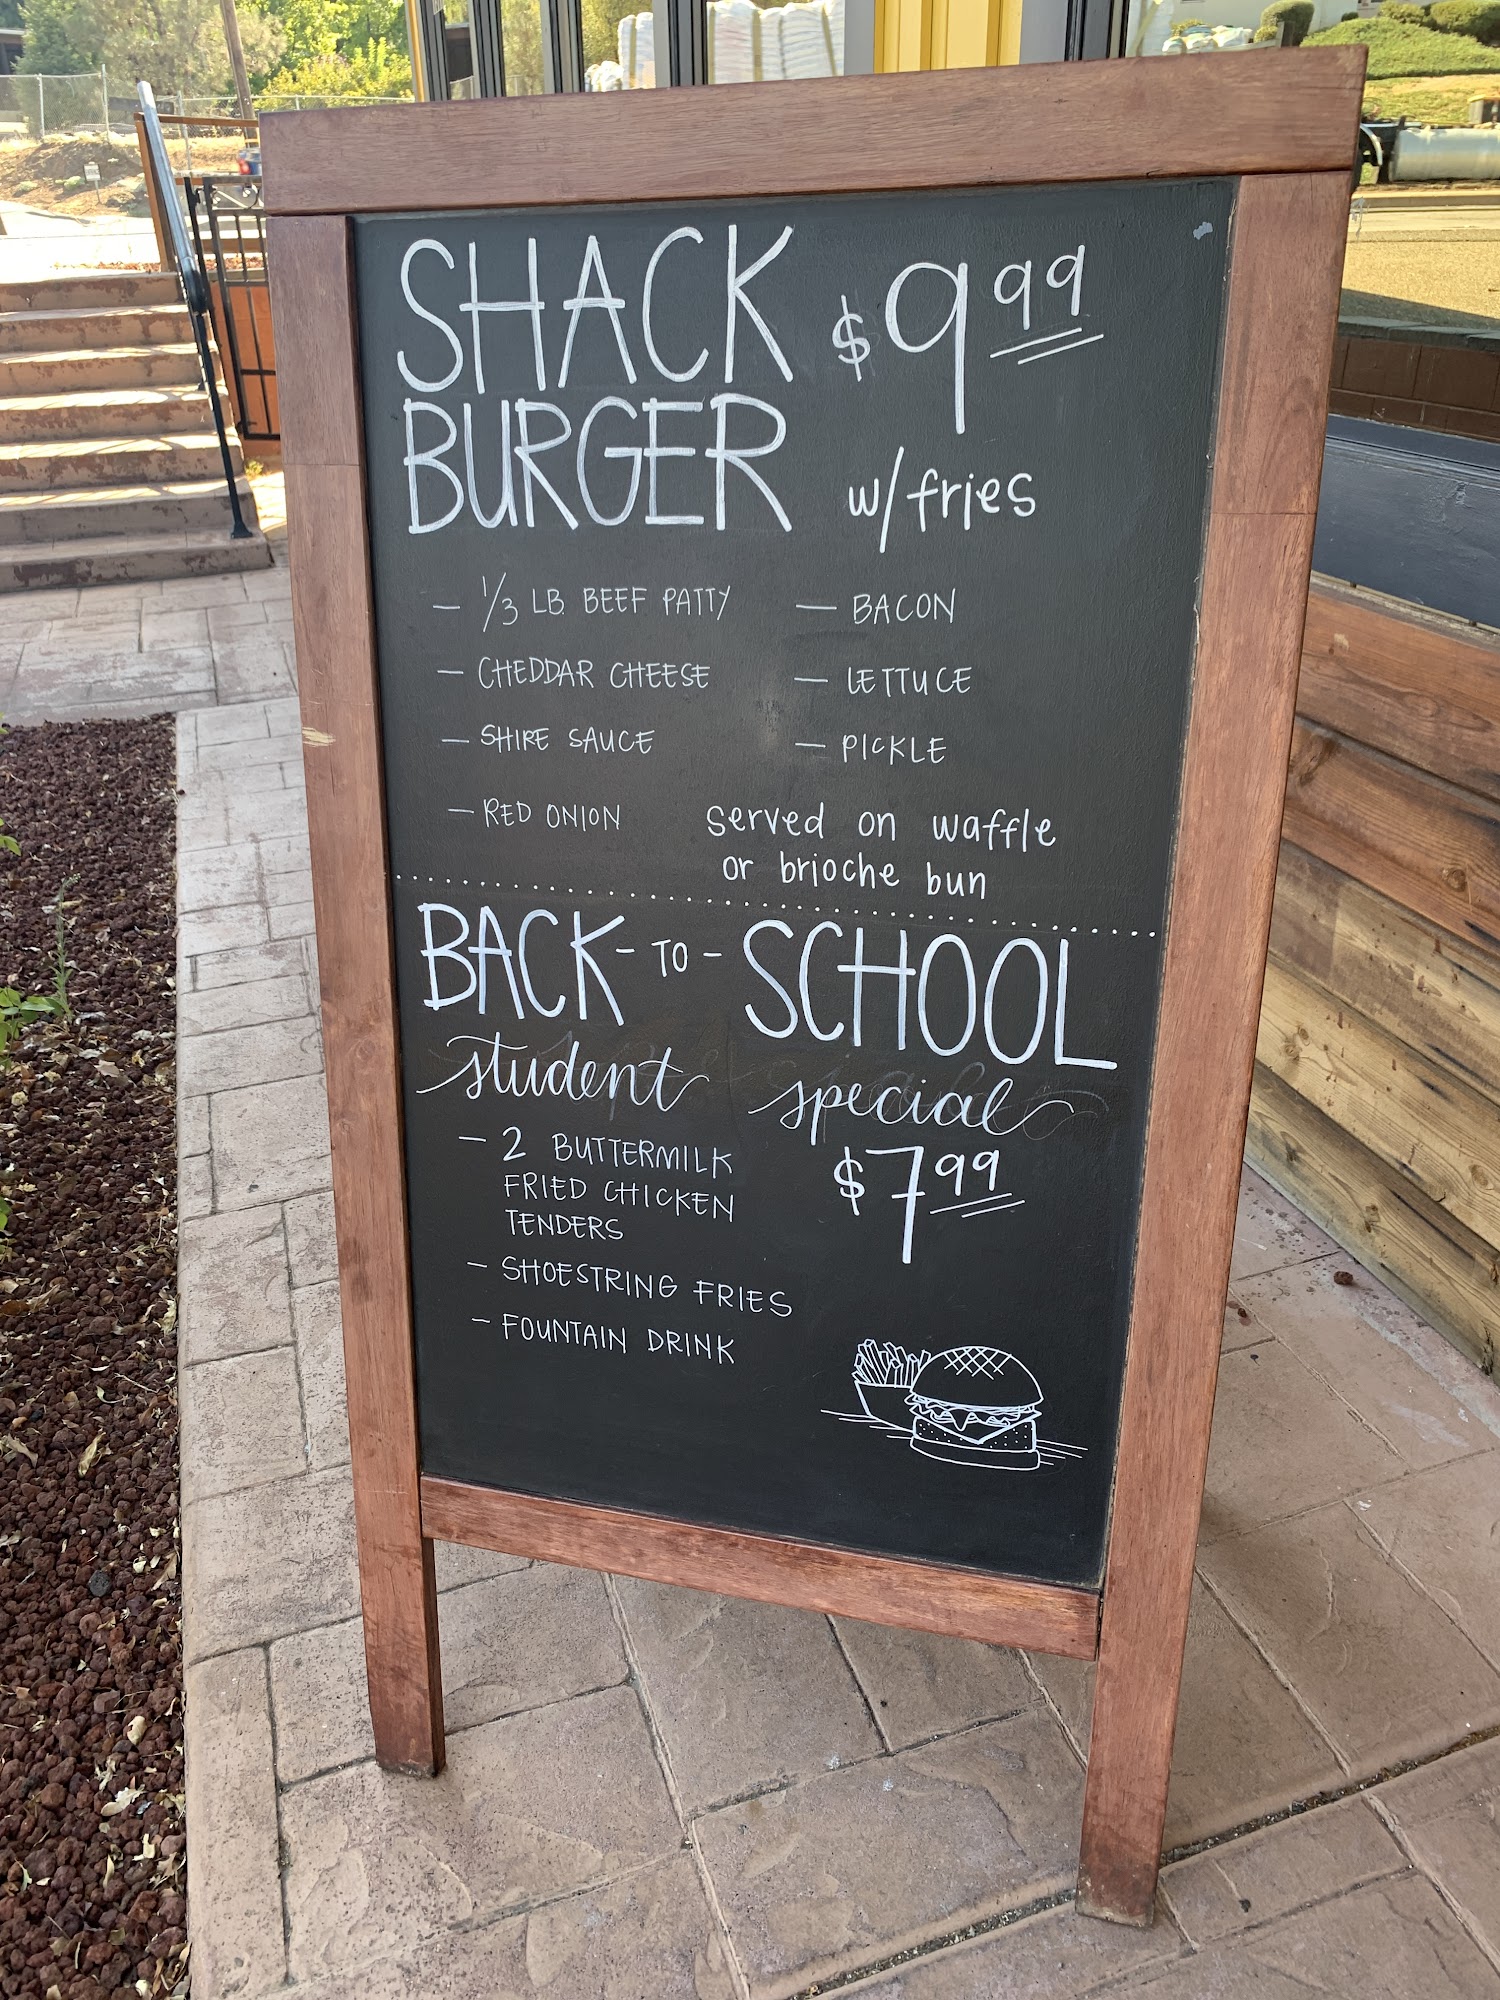 SHACK $9.99
BURGER w/fries
— 1/3 LB. BEEF PATTY — BACON
— CHEDDAR CHEESE — LETTUCE
— SHIRE SAUCE — PICKLE
— RED ONION served on waffle
or brioche bun
BACK-TO-SCHOOL
student special
— 2 BUTTERMILK $7.99
FRIED CHICKEN
TENDERS
— SHOESTRING FRIES
— FOUNTAIN DRINK